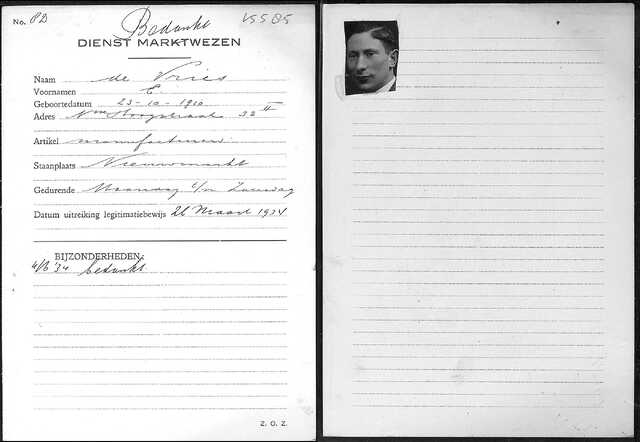 No. PD Bedankt VSS 85
DIENST MARKTWEZEN
Naam de Vries
Voornamen E.
Geboortedatum 23-10-1910
Adres Nwe Hoogstraat 32 II
Artikel manufacturen
Staanplaats Nieuwmarkt
Gedurende Maandag t/m Zaterdag
Datum uitreiking legitimatiebewijs 26 Maart 1934
BIJZONDERHEDEN:
4/6 '34 bedankt
Z. O. Z.